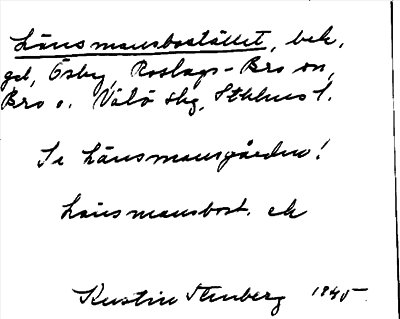 Länsmansbostället, bek.
gd, Ösby, Roslags-Bro sn,
Bro o. Vätö skg, Sthlms l.
Se Länsmansgården!
Länsmansbost. ek
Kerstin Tenberg 1945